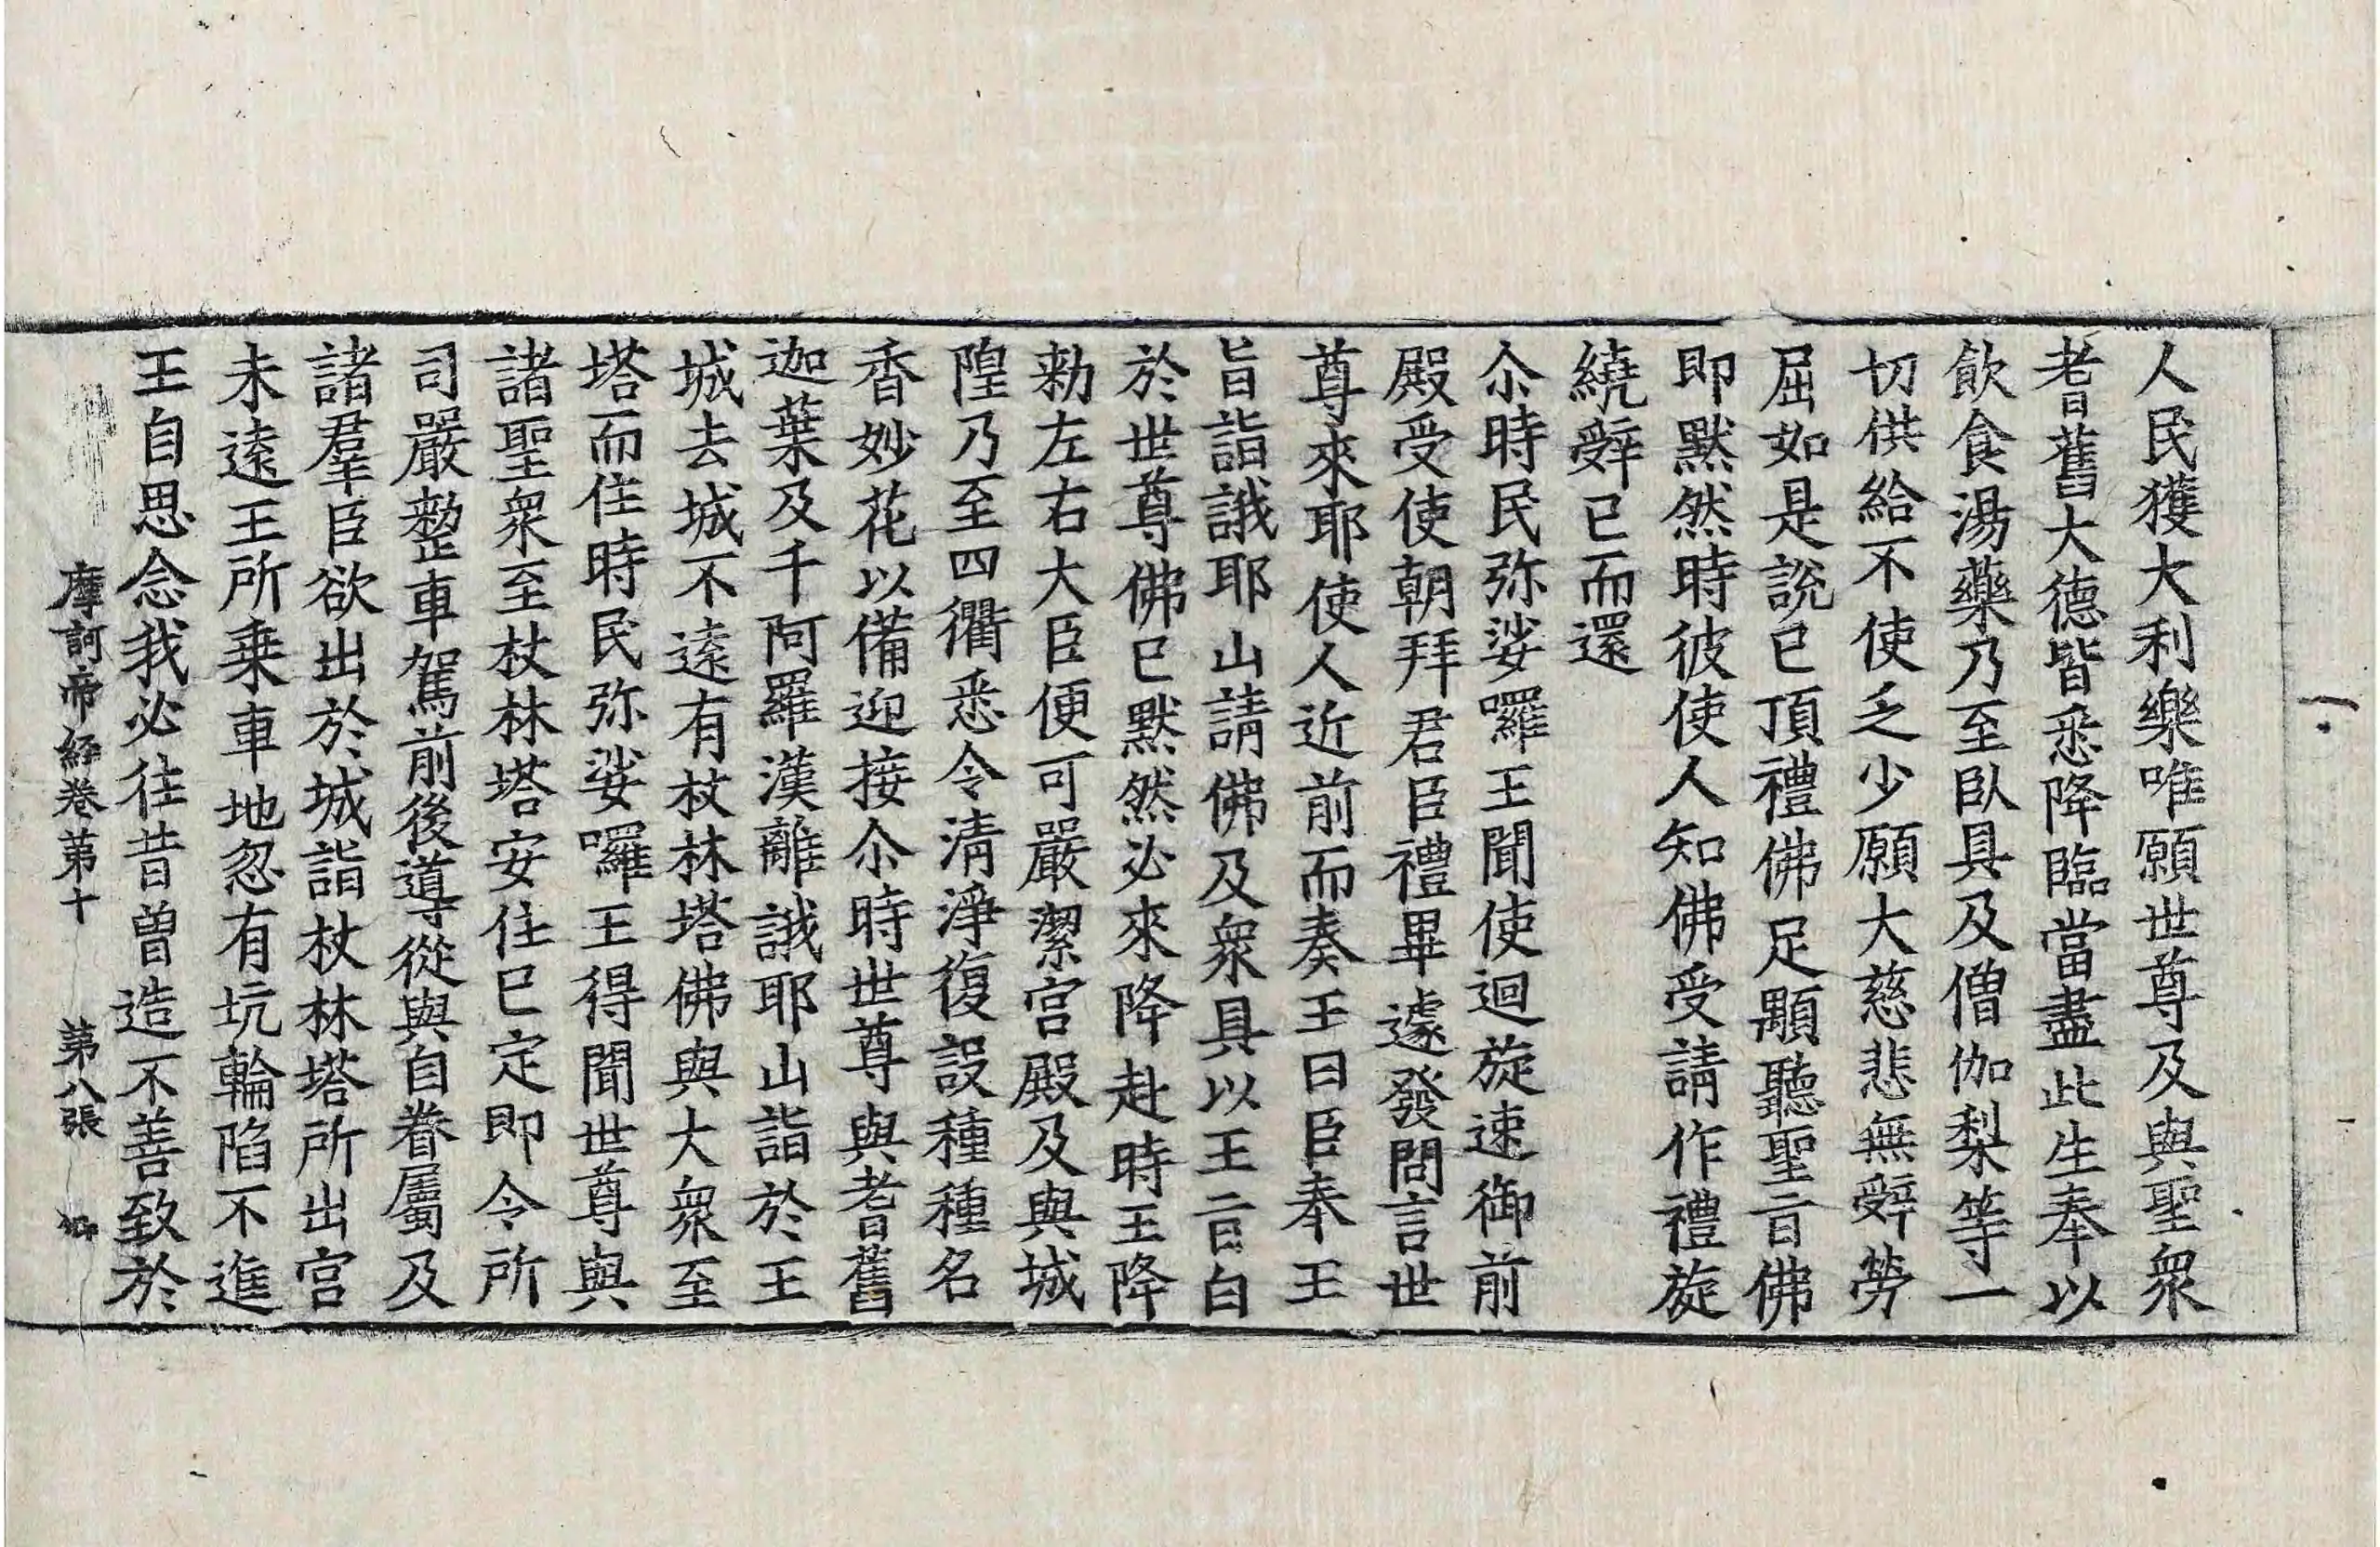 人民獲大利樂唯願世尊及與聖衆
耆舊大德皆悉降臨當盡此生奉以
飲食湯藥乃至臥具及僧伽梨等一
切供給不使乏少願大慈悲無辤勞
屈如是說已頂禮佛足顒聽聖旨佛
即默然時彼使人知佛受請作禮旋
繞辤已而還
尒時民弥娑囉王聞使迴旋速御前
殿受使朝拜君臣禮畢遽發問言世
尊來耶使人近前而奏王曰臣奉王
旨詣誐耶山請佛及衆具以王旨白
於世尊佛已默然必來降赴時王降
勑左右大臣便可嚴潔宮殿及與城
隍乃至四衢悉令清淨復設種種名
香妙花以備迎接尒時世尊與耆舊
迦葉及千阿羅漢離誐耶山詣於王
城去城不遠有杖林塔佛與大衆至
塔而住時民弥娑囉王得聞世尊與
諸聖衆至杖林塔安住已定即令所
司嚴整車駕前後導從與自眷屬及
諸羣臣欲出於城詣杖林塔所出宮
未遠王所乗車地忽有坑輪陷不進
王自思念我必往昔曾造不善致於
摩訶帝經卷第十 第八張